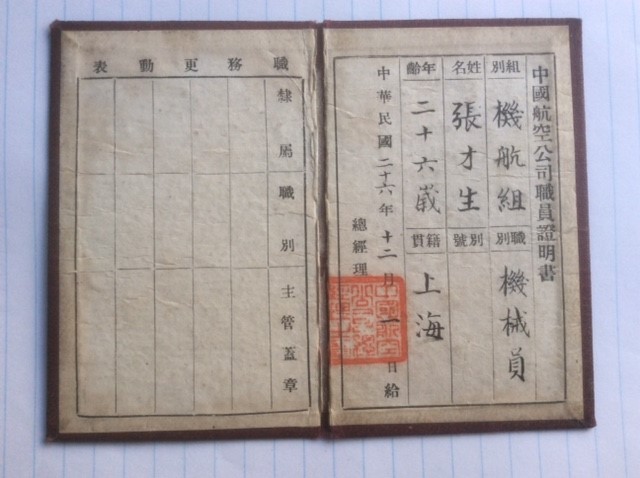 中國航空公司職員證明書
組別 機航組 職別 機械員
姓名 張才生 別號
年齡 二十六歲 籍貫 上海
中華民國二十六年十二月一日給
總經理
職務更動表
隸屬 職別 主管蓋章